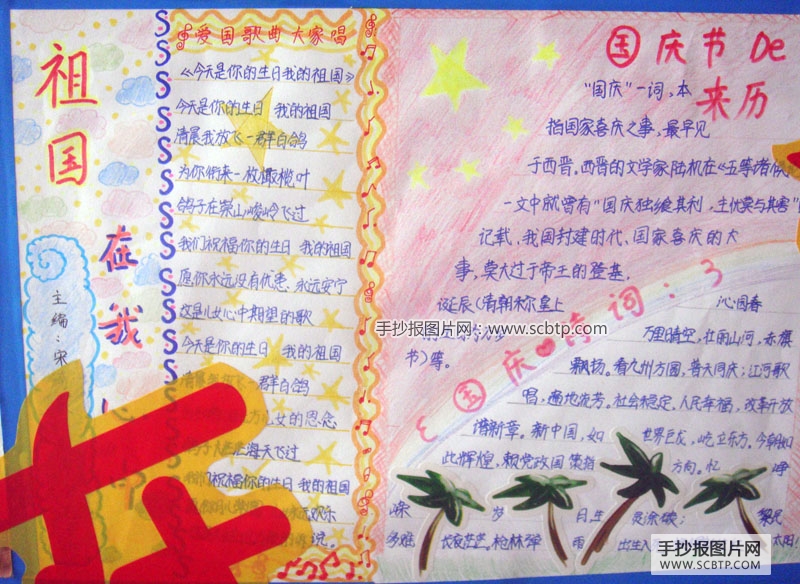 祖国在我
主编：宋
爱国歌曲大家唱
《今天是你的生日我的祖国》
今天是你的生日 我的祖国
清晨我放飞一群白鸽
为你衔来一枚橄榄叶
鸽子在崇山峻岭飞过
我们祝福你的生日 我的祖国
愿你永远没有忧患、永远安宁
这是儿女心中期望的歌
今天是你的生日 我的祖国
清晨我放飞一群白鸽
儿女的思念
海天飞过
我们祝福你的生日 我的祖国
国庆节 De
来历
“国庆”一词，本
指国家喜庆之事，最早见
于西晋。西晋的文学家陆机在《五等诸侯
一文中就曾有“国庆独飨其利，主忧莫与其害”
记载，我国封建时代、国家喜庆的大
事，莫大过于帝王的登基，
诞辰（清朝称皇上
书）等。
国庆诗词：
沁园春
万里晴空，壮丽山河，赤旗
飘扬。看九州方圆，普天同庆；江河歌
唱，遍地流芳。社会稳定，人民幸福，改革开放
谱新章。新中国，如
世界巨龙，屹立东方。今朝如
此辉煌，赖党政国策指
方向。忆
峥
嵘
岁
月
多难
长夜茫茫。枪林弹
雨
太阳
手抄报图片网：www.scbtp.com
手抄报图片网
WWW.SCBTP.COM